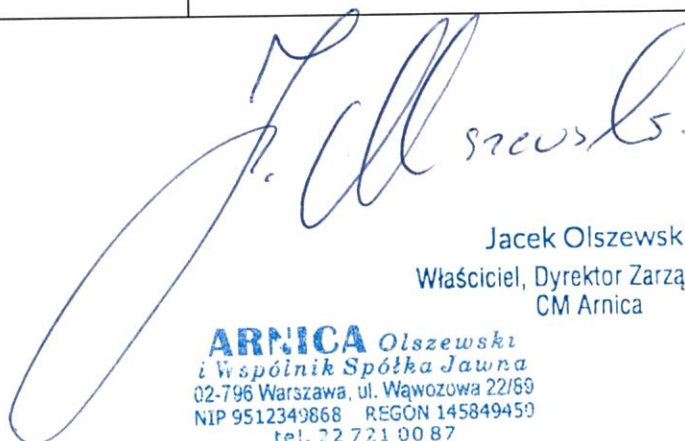 J. Olszewski
Jacek Olszewsk
Właściciel, Dyrektor Zarzą
CM Arnica
ARNICA Olszewski
i Wspólnik Spółka Jawna
02-796 Warszawa, ul. Wąwozowa 22/69
NIP 9512349868 REGON 145849459
tel. 22 721 00 87